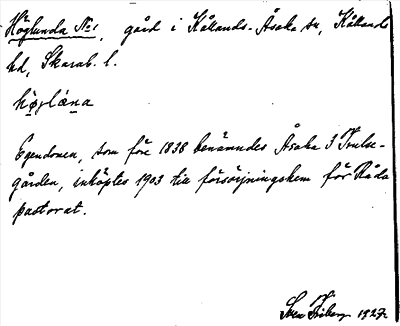 Höglunda No 1, gård i Kållands-Åsaka sn, Kållands
hd, Skarab. l.
hø̨glǽna
Egendomen, som före 1838 benämndes Åsaka 3 Smuls-
gården, inköptes 1903 till försörjningshem för Råda
pastorat.
Sven Friberg 1927.